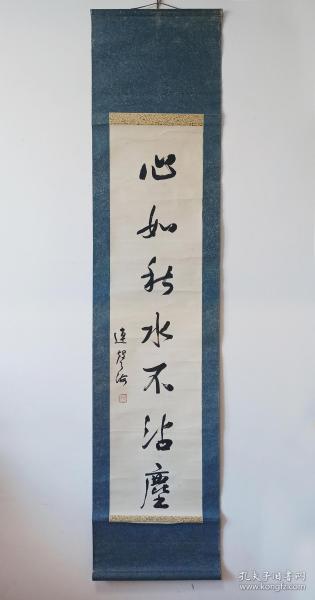 心如秋水不沾塵
連聲海
孔夫子旧书网
www.kongfz.com